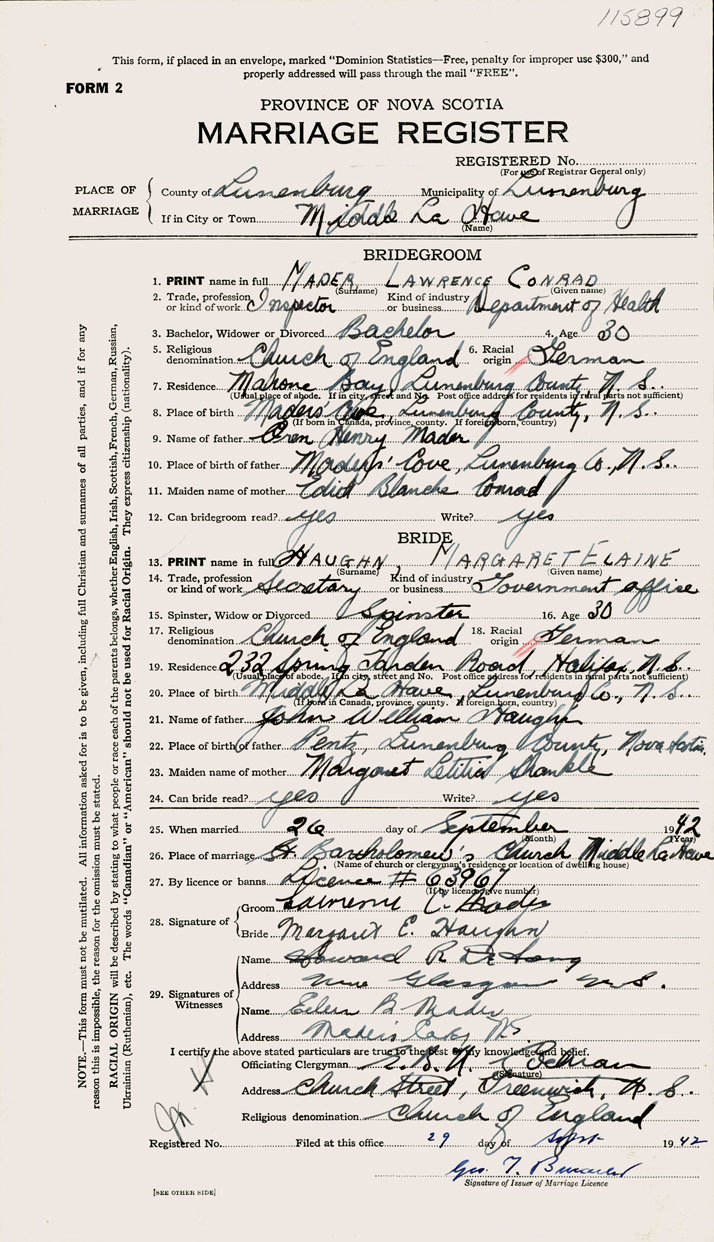 115899
This form, if placed in an envelope, marked "Dominion Statistics—Free, penalty for improper use $300," and
properly addressed will pass through the mail "FREE".
FORM 2
PROVINCE OF NOVA SCOTIA
MARRIAGE REGISTER
REGISTERED No.
(For use of Registrar General only)
PLACE OF MARRIAGE
County of Lunenburg Municipality of Lunenburg
If in City or Town Middle La Have
(Name)
BRIDEGROOM
1. PRINT name in full MADER, LAWRENCE CONRAD
(Surname) (Given name)
2. Trade, profession or kind of work Inspector Kind of industry or business Department of Health
3. Bachelor, Widower or Divorced Bachelor 4. Age 30
5. Religious denomination Church of England 6. Racial origin German
7. Residence Mahone Bay, Lunenburg County, N.S.
(Usual place of abode. If in city, street and No. Post office address for residents in rural parts not sufficient)
8. Place of birth Maders Cove, Lunenburg County, N.S.
(If born in Canada, province, county. If foreign born, country)
9. Name of father Oren Henry Mader
10. Place of birth of father Maders' Cove, Lunenburg Co., N.S.
11. Maiden name of mother Edid Blanche Conrad
12. Can bridegroom read? yes Write? yes
BRIDE
13. PRINT name in full HAUGHN, MARGARET ELAINE
(Surname) (Given name)
14. Trade, profession or kind of work Secretary Kind of industry or business Government office
15. Spinster, Widow or Divorced Spinster 16. Age 30
17. Religious denomination Church of England 18. Racial origin German
19. Residence 232 Spring Garden Road, Halifax, N.S.
(Usual place of abode. If in city, street and No. Post office address for residents in rural parts not sufficient)
20. Place of birth Middle La Have, Lunenburg Co., N.S.
(If born in Canada, province, county. If foreign born, country)
21. Name of father John William Haughn
22. Place of birth of father Pentz, Lunenburg County, Nova Scotia
23. Maiden name of mother Margaret Letitia Shankle
24. Can bride read? yes Write? yes
25. When married 26 day of September 1942
(Month) (Year)
26. Place of marriage St. Bartholomew's Church Middle La Have
(Name of church or clergyman's residence or location of dwelling house)
27. By licence or banns Licence # 63967
(If by licence, give number)
28. Signature of
Groom Lawrence C. Mader
Bride Margaret E. Haughn
29. Signatures of Witnesses
Name Howard R.
Address New Glasgow N.S.
Name Eileen B Mader
Address Maders Cove NS
I certify the above stated particulars are true to the best of my knowledge and belief.
Officiating Clergyman
(Signature)
Address Church Street, Greenwich, N.S.
Religious denomination Church of England
Registered No. Filed at this office 29 day of Sept 1942
Geo. T.
Signature of Issuer of Marriage Licence
[SEE OTHER SIDE]
NOTE.—This form must not be mutilated. All information asked for is to be given, including full Christian and surnames of all parties, and if for any
reason this is impossible, the reason for the omission must be stated.
RACIAL ORIGIN will be described by stating to what people or race each of the parents belongs, whether English, Irish, Scottish, French, German, Russian,
Ukrainian (Ruthenian), etc. The words "Canadian" or "American" should not be used for Racial Origin. They express citizenship (nationality).